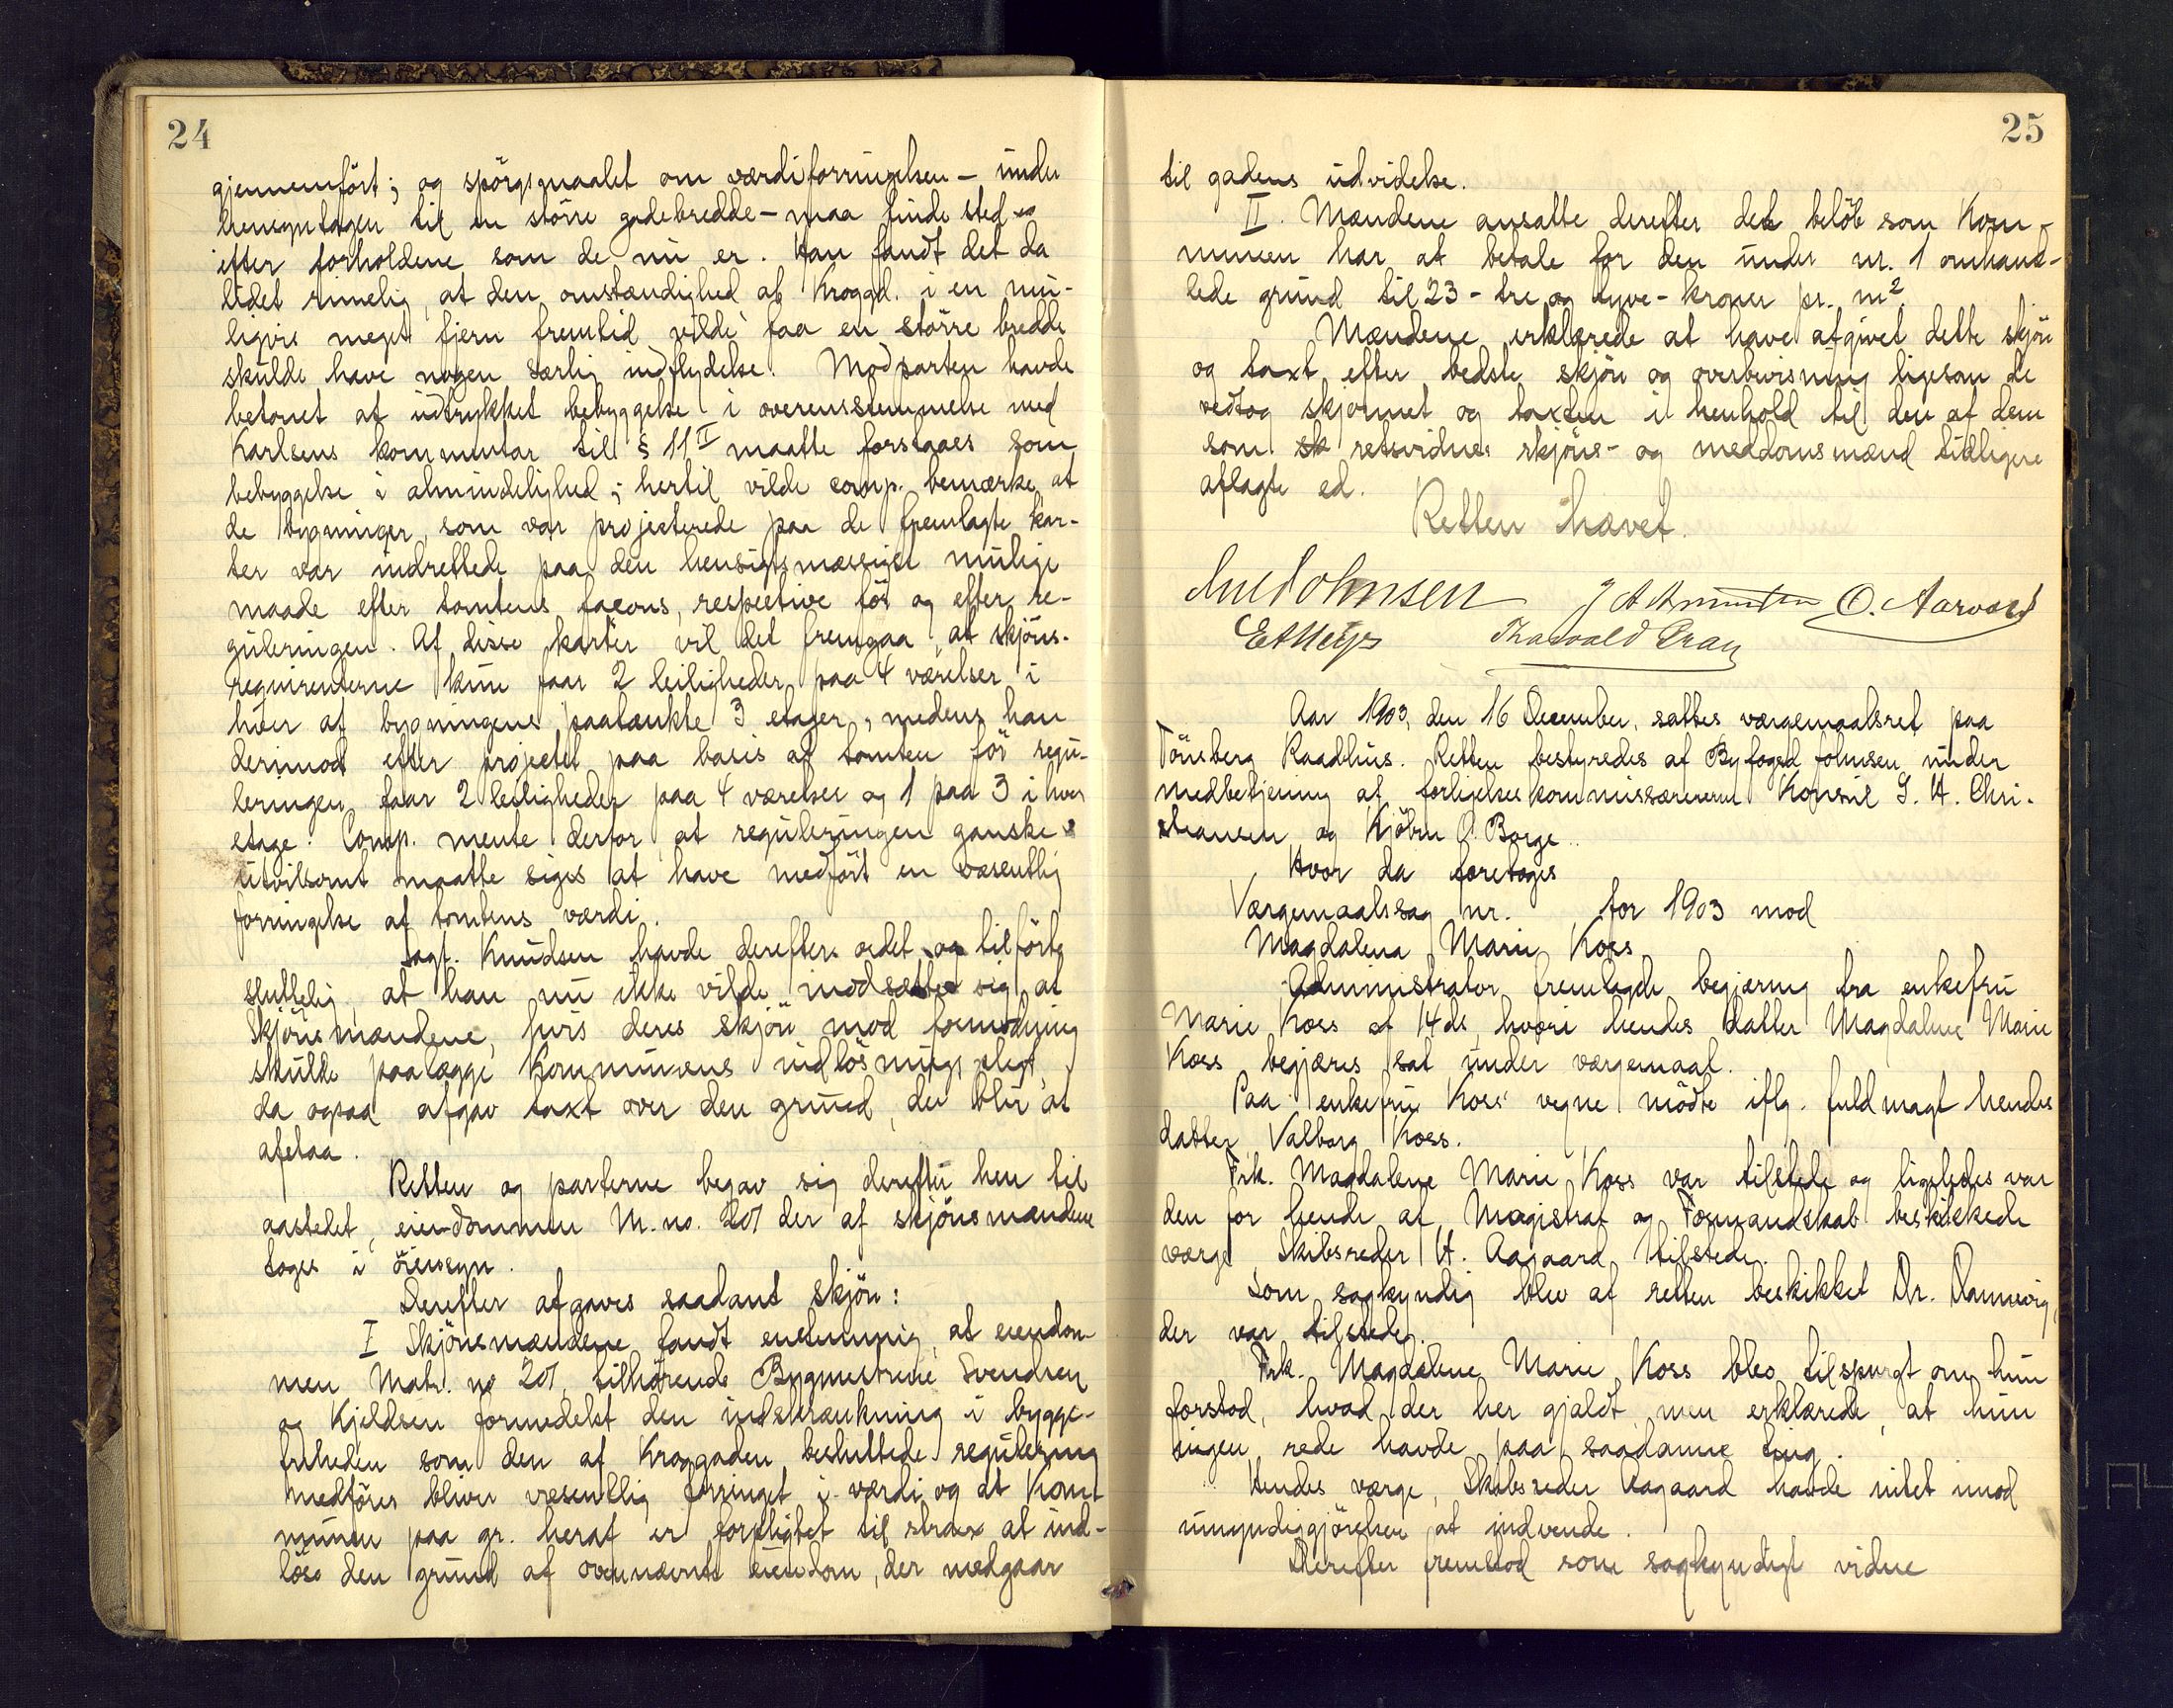 24
gjennemført; og spörgsmaalet om værdiforringelsen – under
hensyntagen til en större gadebredde – maa finde sted
efter forholdene som de nu er. Han fandt det da
lidet rimelig, at den omstændighed at Kroggd. i en mu-
ligvis meget fjern fremtid vilde faa en större bredde
skulde have nogen særlig indflydelse. Modparten havde
betonet at udtrykket bebyggelse i overensstemmelse med
Karlsens kommentar til § 11 I maatte forstaaes som
bebyggelse i almindelighed; hertil vilde comp. bemærke at
de bygninger, som var projecterede paa de fremlagte kar-
ter var indrettede paa den hensigtsmæssigst mulige
maade efter tomtens facons, respective för og efter re-
guleringen. Af disse karter vil det fremgaa, at skjöns-
requirenterne kun faar 2 leiligheder paa 4 værelser i
hver af bygningens paatænkte 3 etager, medens han
derimod efter projectet paa basis af tomten för regu-
leringen faar 2 leiligheder paa 4 værelser og 1 paa 3 i hver
etage. Comp. mente derfor at reguleringen ganske
utvilsomt maatte siges at have medfört en væsentlig
forringelse af tomtens værdi.
Sagf. Knudsen havde derefter ordet og tilförte
sluttelig, at han nu ikke vilde modsætte sig at
Skjönsmændene, hvis deres skjön mod formodning
skulde paalægge Kommunens indlösningspligt,
da ogsaa afgav taxt over den grund, der blir at
afstaa.
Retten og parterne begav sig derefter hen til
aastedet, eiendommen M.no. 207 der af skjönsmændene
toges i öiensyn.
Derefter afgaves saadant skjön:
I Skjönsmændene fandt enstemmig, at eiendom-
men Matr. no 207, tilhörende Bygmestrene Svendsen
og Kjeldsen formedelst den indskrænkning i bygge-
friheden som den af Kroggaden besluttede regulering
medförer bliver væsentlig forringet i værdi og at Kom-
munen paa gr. heraf er forpligtet til strax at ind-
löse den grund af ovennævnte eiendom, der medgaar
25
til gadens udvidelse.
II. Mændene ansatte derefter det belöb som Kom-
munen har at betale for den under nr. 1 omhand-
lede grund til 23 – tre og tyve – kroner pr. m2.
Mændene erklærede at have afgivet dette skjön
og taxt efter bedste skjön og overbevisning ligesom de
vedtog skjönnet og taxten i henhold til den af dem
som retsvidner skjöns- og meddomsmænd tidligere
aflagte ed.
Retten hævet.
Johnsen O. Aarvold
Thorvald
Aar 1903, den 16 December, sattes værgemaalsret paa
Tönsberg Raadhus. Retten bestyredes af Byfoged Johnsen under
medbetjening af forligelseskommissærerne Konsul S. H. Chri-
stiansen og Kjöbm O. Borge.
Hvor da foretoges
Værgemaalssag nr. for 1903 mod
Magdalena Marie Koss
Administrator fremlagde begjæring fra enkefru
Marie Koss af 14 ds, hvori hendes datter Magdalene Marie
Koss begjæres sat under værgemaal.
Paa enkefru Koss' vegne mödte iflg. fuldmagt hendes
datter Valborg Koss.
Frk. Magdalene Marie Koss var tilstede og ligeledes var
den for hende af Magistrat og Formandskab beskikkede
værge, Skibsreder H. Aagaard tilstede.
Som sagkyndig blev af retten beskikket Dr. Dannevig,
der var tilstede.
Frk. Magdalene Marie Koss blev tilspurgt om hun
forstod, hvad der her gjaldt, men erklærede, at hun
ingen rede havde paa saadanne ting.
Hendes værge, Skibsreder Aagaard havde intet imod
umyndiggjörelsen at indvende.
Derefter fremstod som sagkyndigt vidne